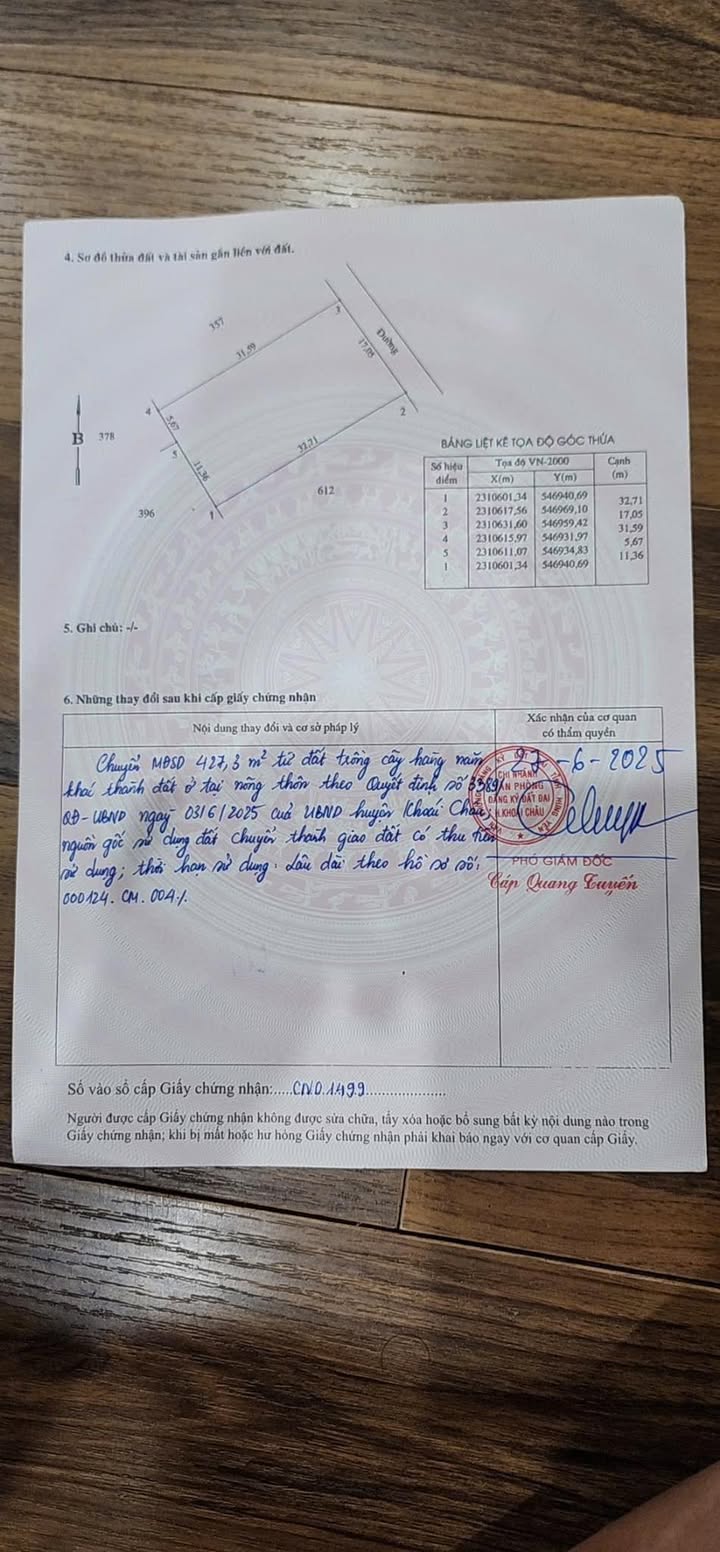 4. Sơ đồ thửa đất và tài sản gắn liền với đất.
357
3
Đường
31,59
17,05
4
2
B
378
5,67
5
11,36
32,71
612
396
1
BẢNG LIỆT KÊ TỌA ĐỘ GÓC THỬA
Số hiệu điểm Tọa độ VN-2000 Cạnh (m)
X(m) Y(m)
1 2310601,34 546940,69
32,71
2 2310617,56 546969,10
17,05
3 2310631,60 546959,42
31,59
4 2310615,97 546931,97
5,67
5 2310611,07 546934,83
11,36
1 2310601,34 546940,69
5. Ghi chú: -/-
6. Những thay đổi sau khi cấp giấy chứng nhận
Nội dung thay đổi và cơ sở pháp lý
Xác nhận của cơ quan
có thẩm quyền
Chuyển MĐSD 427,3 m² từ đất trồng cây hàng năm
khác thành đất ở tại nông thôn theo Quyết định số 3389/
QĐ-UBND ngày 03/6/2025 của UBND huyện Khoái Châu;
nguồn gốc sử dụng đất chuyển thành giao đất có thu tiền
sử dụng; thời hạn sử dụng: Lâu dài theo hồ sơ số:
000124.CM.004./.
-6-2025
CHI NHÁNH
VĂN PHÒNG
ĐĂNG KÝ ĐẤT ĐAI
H.KHOÁI CHÂU
PHÓ GIÁM ĐỐC
Cáp Quang Tuyến
Số vào sổ cấp Giấy chứng nhận:.....CN0.1499....................
Người được cấp Giấy chứng nhận không được sửa chữa, tẩy xóa hoặc bổ sung bất kỳ nội dung nào trong
Giấy chứng nhận; khi bị mất hoặc hư hỏng Giấy chứng nhận phải khai báo ngay với cơ quan cấp Giấy.